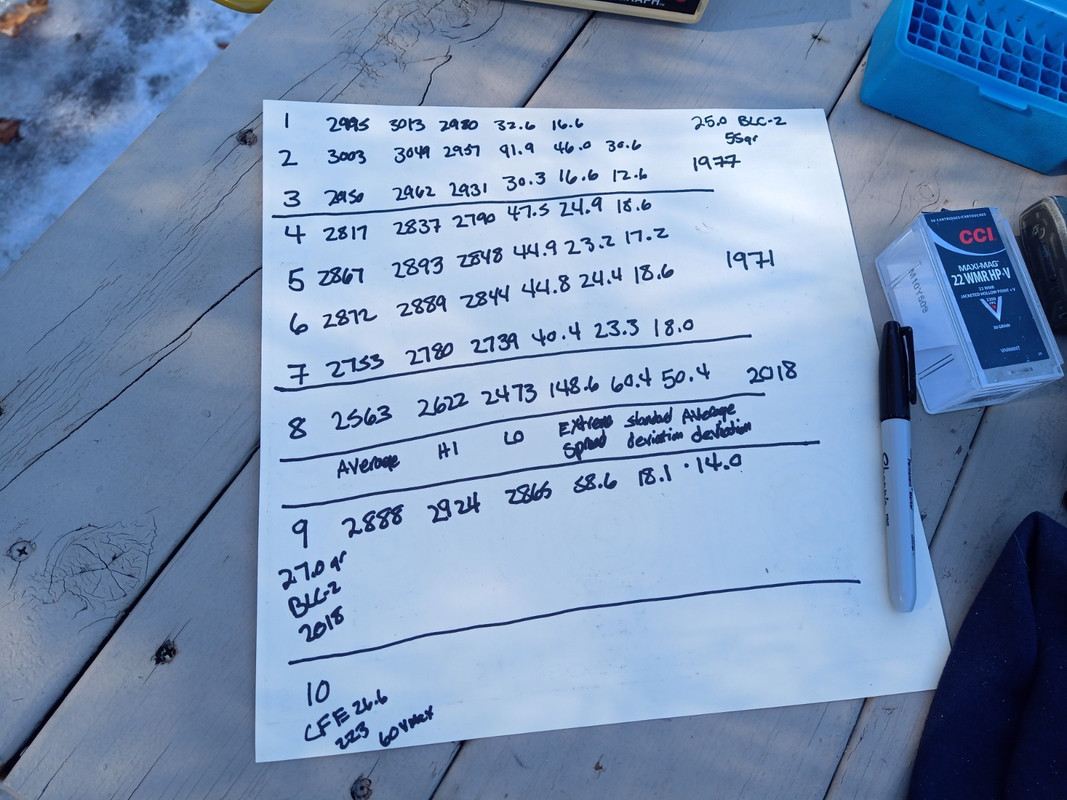 GRAPH
1 2995 3013 2980 32.6 16.6 25.0 BLC-2
55gr
2 3003 3049 2957 91.9 46.0 30.6
1977
3 2950 2962 2931 30.3 16.6 12.6
4 2817 2837 2790 47.5 24.9 18.6
5 2867 2893 2848 44.9 23.2 17.2
1971
6 2872 2889 2844 44.8 24.4 18.6
7 2753 2780 2739 40.4 23.3 18.0
8 2563 2622 2473 148.6 60.4 50.4 2018
Average HI LO Extreme Spread standad deviation Average deviation
9 2888 2924 2865 58.6 18.1 14.0
27.0 gr
BLC-2
2018
10
CFE 26.6
223 60 Vmax
CCI
MAXI-MAG
22 WMR HP+V
22 WMR
JACKETED HOLLOW POINT + V
30 GRAIN
VARMINT
M10Y509
Sharpie